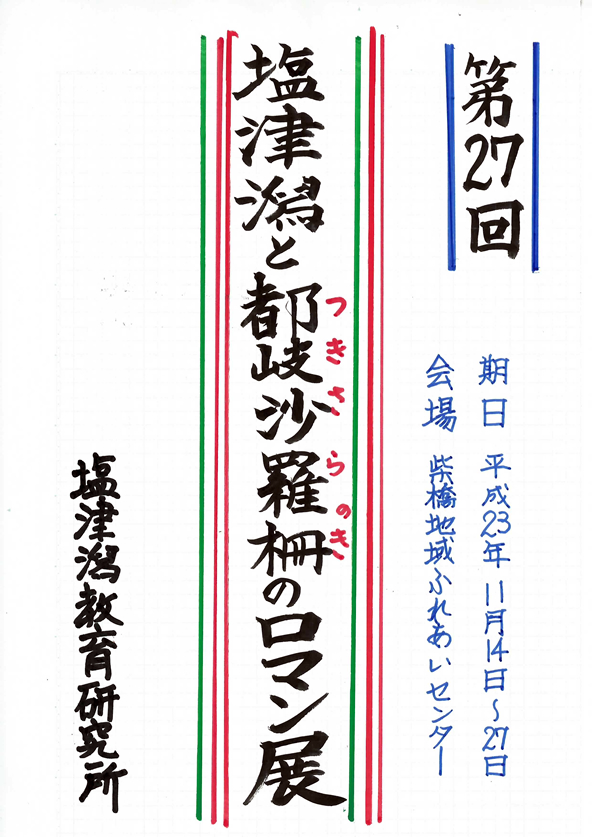 第27回
期日 平成23年 11月14日～27日
会場 柴橋地域ふれあいセンター
塩津潟と都岐沙羅柵のロマン展
つきさらのき
塩津潟教育研究所